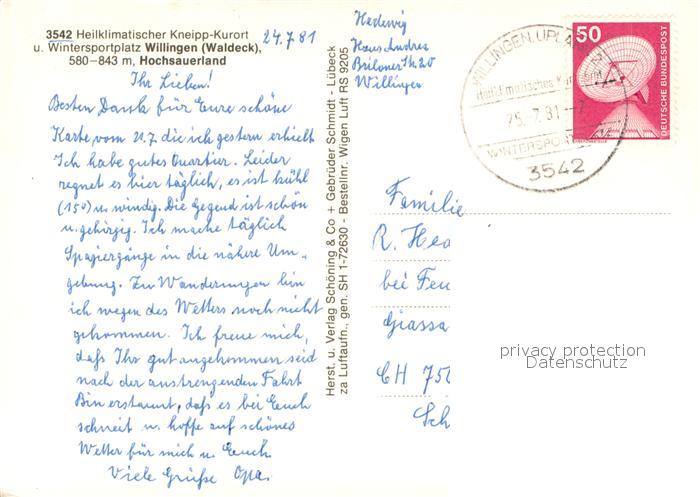 3542 Heilklimatischer Kneipp-Kurort
u. Wintersportplatz Willingen (Waldeck),
580–843 m, Hochsauerland
24.7.81
Ihr Lieben!
Besten Dank für Eure schöne
Karte vom 20.7 die ich gestern erhielt
Ich habe gutes Quartier. Leider
regnet es hier täglich, es ist kühl
(15°) u. windig. Die Gegend ist schön
u. gebirgig. Ich mache täglich
Spaziergänge in die nähere Um-
gebung. Zu Wanderungen bin
ich wegen des Wetters noch nicht
gekommen. Ich freue mich,
daß Ihr gut angekommen seid
nach der anstrengenden Fahrt
Bin erstaunt, daß es bei Euch
schneit u. hoffe auf schönes
Wetter für mich u. Euch.
Viele Grüße Opa.
Herst. u. Verlag Schöning & Co + Gebrüder Schmidt - Lübeck
za Luftaufn., gen. SH 1-72630 - Bestellnr. Wigen Luft RS 9205
Hedwig
Haus Andrea
Briloner Str. 20
Willingen
WILLINGEN, UPLAND
Heilklimatisches Kn
25.7.81 -7
WINTERSPORT
3542
50
DEUTSCHE BUNDESPOST
Familie
R. Hea
bei Feu
Giassa
CH 750
Sch
privacy protection
Datenschutz